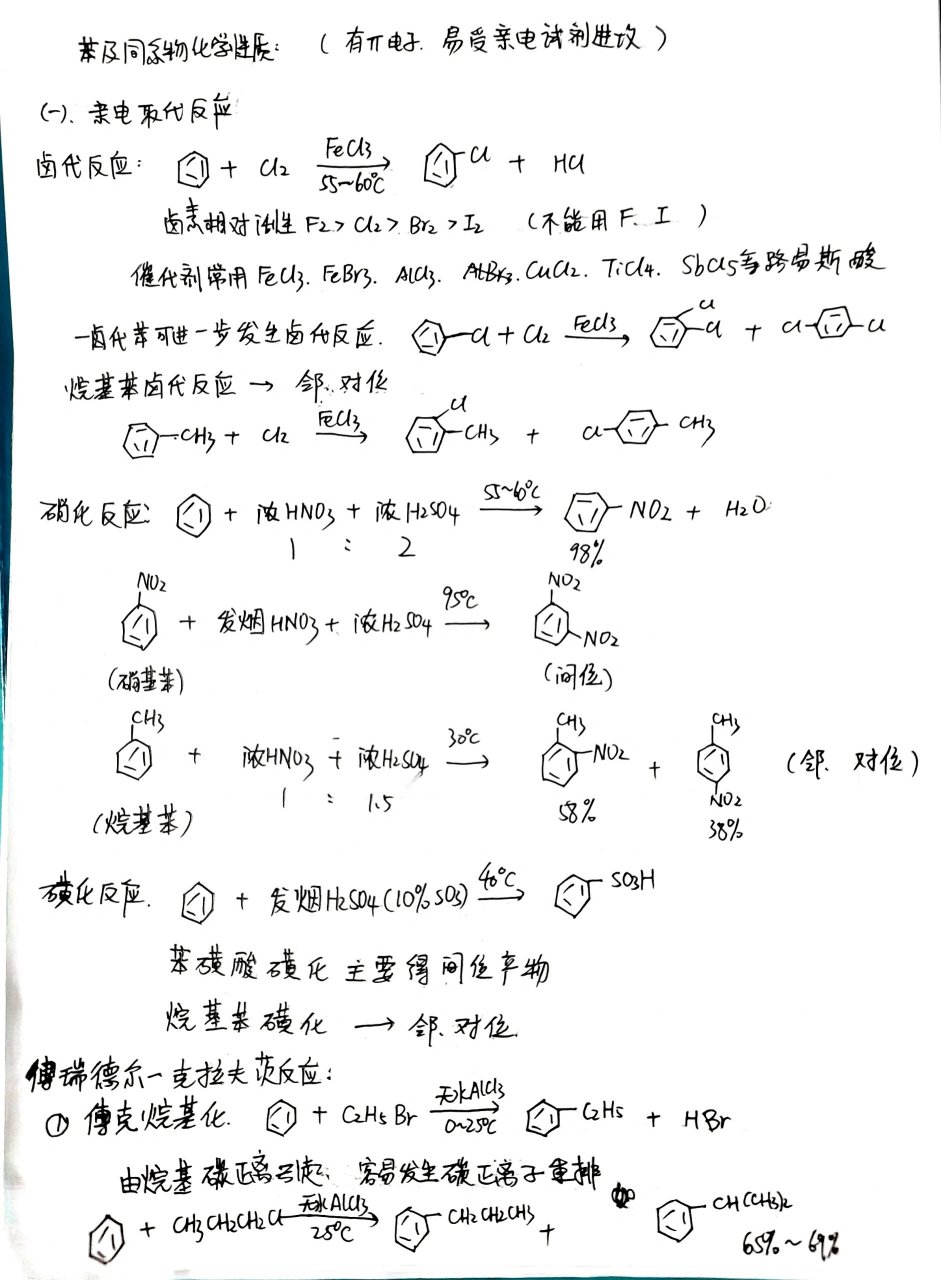 苯及同系物化学性质：（有π电子．易受亲电试剂进攻）
(一)、亲电取代反应
卤代反应： + Cl2 FeCl3 55~60℃ Cl + HCl
卤素相对活性 F2 > Cl2 > Br2 > I2 （不能用 F、I ）
催代剂常用 FeCl3、FeBr3、AlCl3、AlBr3、CuCl2、TiCl4、SbCl5等路易斯酸
一卤代苯可进一步发生卤代反应． Cl + Cl2 FeCl3 Cl Cl + Cl Cl
烷基苯卤代反应 → 邻、对位
CH3 + Cl2 FeCl3 Cl CH3 + Cl CH3
硝化反应： + 浓HNO3 + 浓H2SO4 55~60℃ NO2 + H2O
1 : 2 98%
NO2 NO2
+ 发烟HNO3 + 浓H2SO4 95℃ NO2
(硝基苯) (间位)
CH3 CH3 CH3
+ 浓HNO3 + 浓H2SO4 30℃ NO2 + NO2 (邻、对位)
(烷基苯) 1 : 1.5 58% 38%
磺化反应． + 发烟H2SO4(10%SO3) 40℃ SO3H
苯磺酸磺化主要得间位产物
烷基苯磺化 → 邻、对位
傅瑞德尔－克拉夫茨反应：
① 傅克烷基化． + C2H5Br 无水AlCl3 0~25℃ C2H5 + HBr
由烷基碳正离引起、容易发生碳正离子重排
+ CH3CH2CH2Cl 无水AlCl3 25℃ CH2CH2CH3 + CH(CH3)2
65%~69%